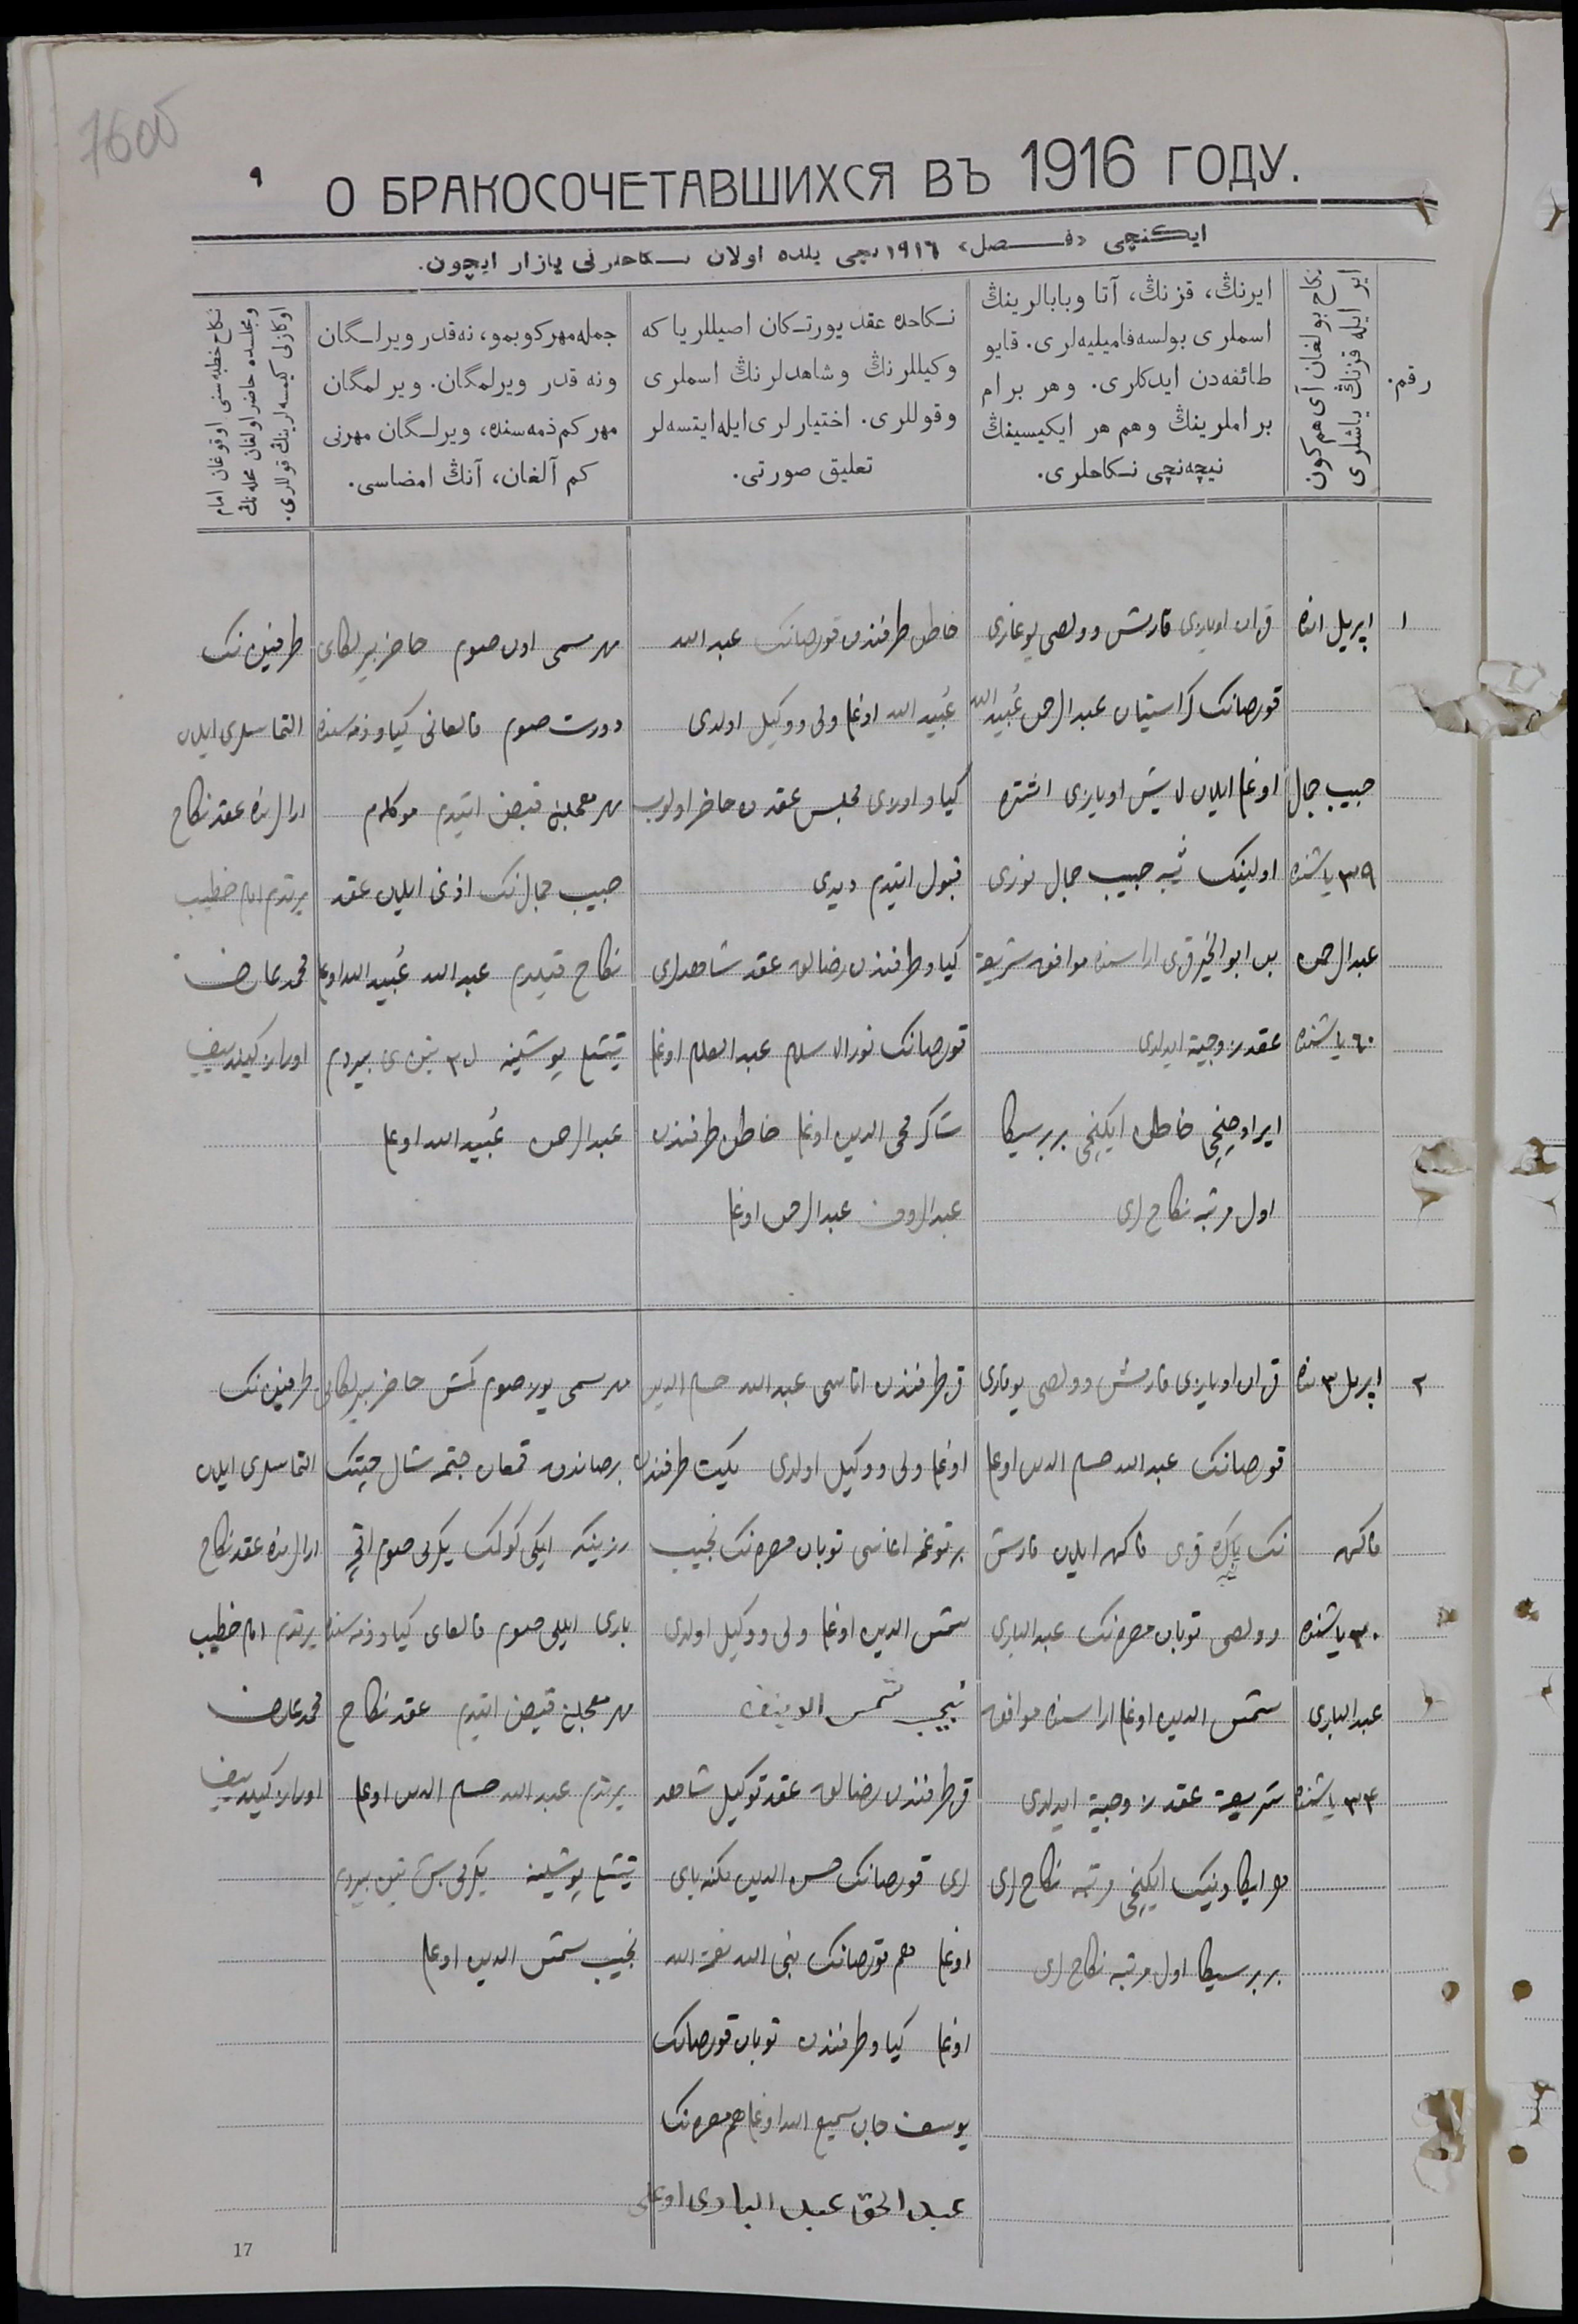 760б
٩
О БРАКОСОЧЕТАВШИХСЯ ВЪ 1916 ГОДУ.
ایكنچی «فصل» ١٩١٦ نچی یلده اولان نكاحلرنی یازار ایچون.
رقم.
نكاح بولغان آی هم كون
ایر ایله قزنڭ یاشلری
ایرنڭ، قزنڭ، آتا وبابالرینڭ
اسملری بولسه فامیلیه‌لری. قایو
طائفه‌دن ایدكلری. وهر برام
براملرینڭ وهم هر ایكیسینڭ
نیچه‌نچی نكاحلری.
نكاحده عقد یورتكان اصیللر یا كه
وكیللرنڭ وشاهدلرنڭ اسملری
وقوللری. اختیارلری ایله ایتسه‌لر
تعلیق صورتی.
جمله مهر كوبمو، نه قدر ویرلگان
ونه قدر ویرلمگان. ویرلمگان
مهر كم ذمه‌سنده، ویرلگان مهرنی
كم آلغان، آنڭ امضاسی.
نكاح خطبه‌سنی اوقوغان امام
ومجلسده حاضر اولغان محله‌نڭ
اوكازلی كیمسه‌لرینڭ قوللری.
١
اپریل
حبیب جمال
٣٩ یاشنده
عبدالرحمن
٦٠ یاشنده
قزان اویازی قارش وولصی یوغاری
قورصانك كراستیان عبدالرحمن عُبیدالله
اوغلی ایلان لایش اویازی اشتره
اولینك ثیبه حبیب جمال نوزی
بن ابوالخیر قزی اراسنده موافق شریعة
عقد زوجیة ایدلدی
ایر اوچنچی خاطن ایكنچی بربرسیكا
اول مرتبه نكاحلری
خاطن طرفندن قورصانك عبدالله
عُبیدالله اوغلی ولی و وكیل اولدی
كیاو اوزی مجلس عقدده حاضر اولوب
قبول ایتدم دیدی
كیاو طرفندن رضالق عقد شاهدلری
قورصانك نورالاسلام عبدالعلام اوغلی
شاكر محی الدین اوغلی خاطن طرفندن
عبدالروف عبدالرحمن اوغلی
مهر مسمی اون صوم حاضر بیرلكانی
دورت صوم قالغانی كیاو ذمه‌سنده
مهر معجلنی قبض ایتدم موكلم
حبیب جمالنك اذنی ایلان عقد
نكاح قیلدم عبدالله عُبیدالله اوغلی
تیشلی پوشلینه
عبدالرحمن عُبیدالله اوغلی
طرفین نك
التماسلری ایلان
ارالرنده عقد نكاح
یرتدم امام خطیب
محمد عارف
٢
اپریل ٣ نده
٣٠ یاشنده
عبدالباری
٣٤ یاشنده
قزان اویازی قارش وولصی یوقاری
قورصانك عبدالله حسام الدین اوغلی
نك باكره قزی ایلان قارش
وولصی توبان نك عبدالباری
شمس الدین اوغلی اراسنده موافق
شریعة عقد زوجیة ایدلدی
هر ایكاونیك ایكنچی مرتبه نكاحلری
بربرسیكا اول مرتبه نكاحلری
قز طرفندن اتاسی عبدالله حسام الدین
اوغلی ولی و وكیل اولدی یكیت طرفندن
برتوغمه اغاسی توبان نك نجیب
شمس الدین اوغلی ولی و وكیل اولدی
نجیب شمس الدینف
قز طرفندن رضالق عقد توكیل شاهد
لری قورصانك
اوغلی هم قورصانك نعمة الله
اوغلی كیاو طرفندن توبان قورصانك
یوسف جان سمیع الله اوغلی هم نك
عبدالحق عبدالباری اوغلی
مهر مسمی یوز صوم كمش حاضر بیرلكانی
شال چیتك
ایكی كولمك یكرمی صوم اقچه
باری ایللی صوم قالغانی كیاو ذمه‌سنده
مهر معجلنی قبض ایتدم عقد نكاح
یرتدم عبدالله حسام الدین اوغلی
تیشلی پوشلینه یكرمی بش تین بیردم
نجیب شمس الدین اوغلی
طرفین نك
التماسلری ایلان
ارالرنده عقد نكاح
یرتدم امام خطیب
محمد عارف
17